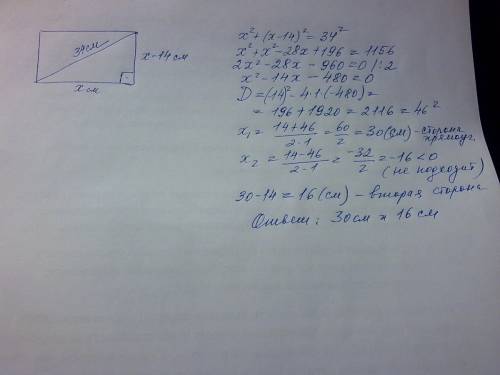 34 см
x-14 см
x см
x² + (x-14)² = 34²
x² + x² - 28x + 196 = 1156
2x² - 28x - 960 = 0 | : 2
x² - 14x - 480 = 0
D = (14)² - 4·1·(-480) =
= 196 + 1920 = 2116 = 46²
x₁ = (14+46)/(2·1) = 60/2 = 30 (см) - сторона прямоуг.
x₂ = (14-46)/(2·1) = -32/2 = -16 < 0
(не подходит)
30 - 14 = 16 (см) - вторая сторона
Ответ: 30 см и 16 см